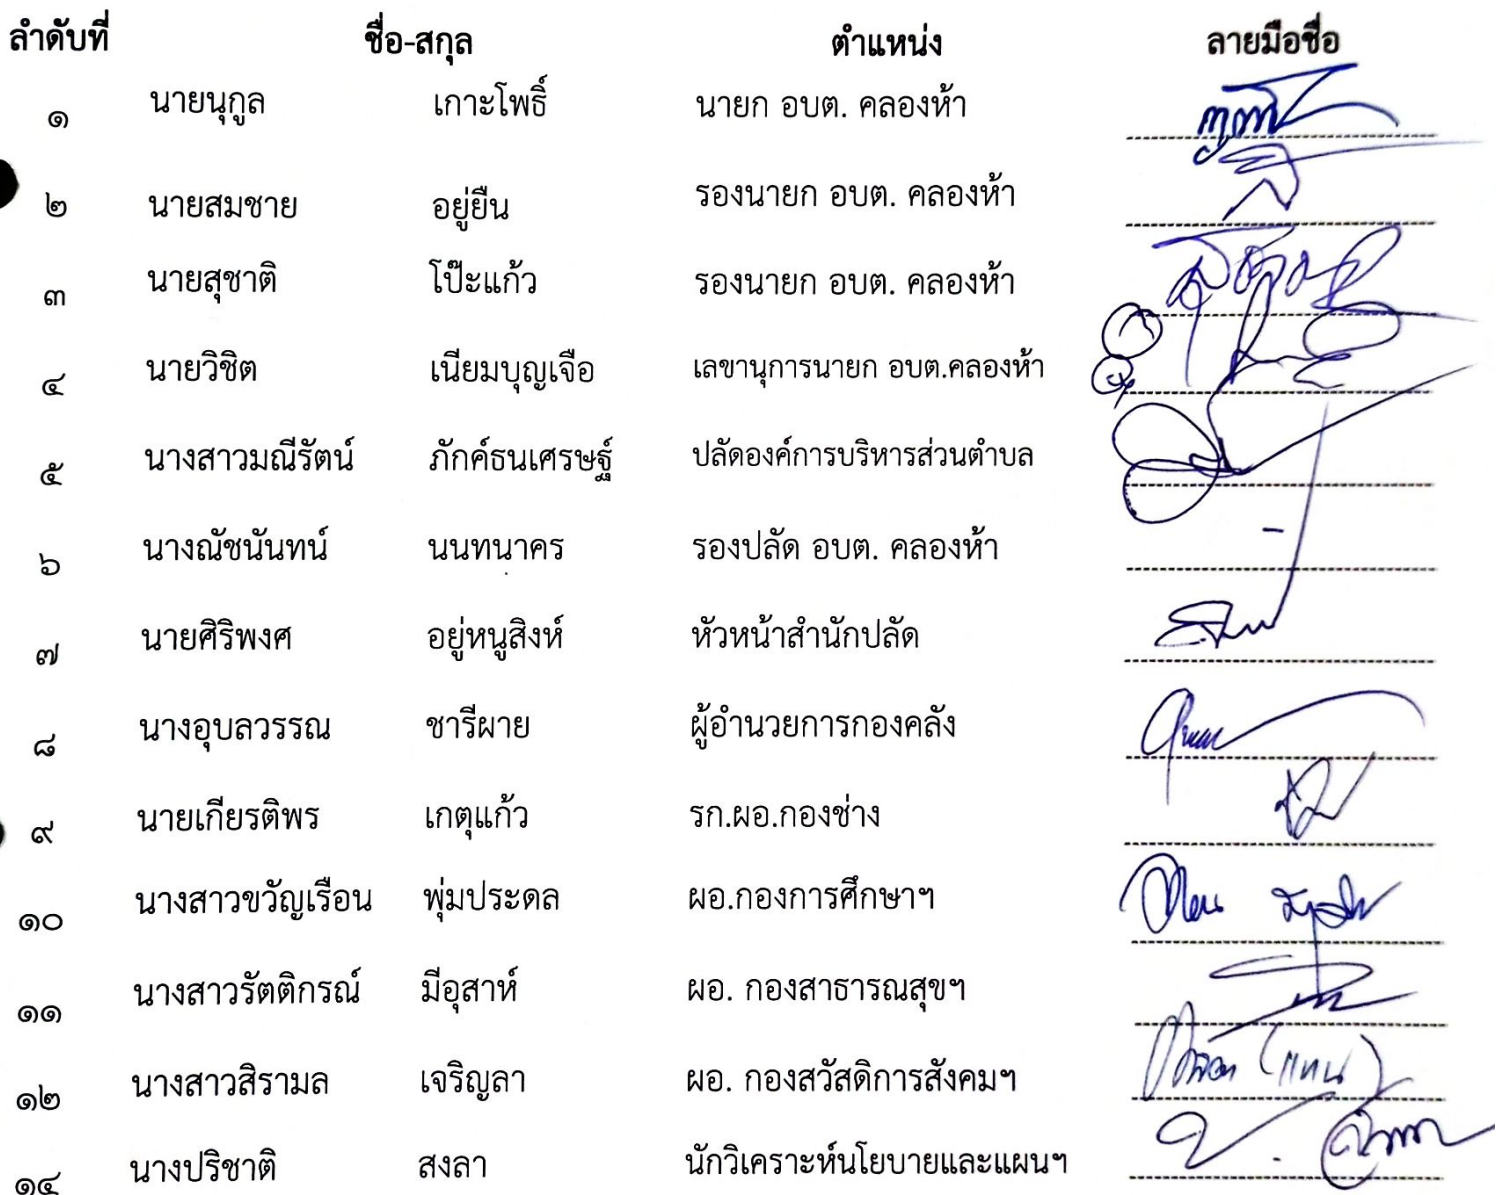 ลำดับที่ ชื่อ-สกุล ตำแหน่ง ลายมือชื่อ
๑ นายนุกูล เกาะโพธิ์ นายก อบต. คลองห้า
๒ นายสมชาย อยู่ยืน รองนายก อบต. คลองห้า
๓ นายสุชาติ โป๊ะแก้ว รองนายก อบต. คลองห้า
๔ นายวิชิต เนียมบุญเจือ เลขานุการนายก อบต.คลองห้า
๕ นางสาวมณีรัตน์ ภักค์ธนเศรษฐ์ ปลัดองค์การบริหารส่วนตำบล
๖ นางณัชนันทน์ นนทนาคร รองปลัด อบต. คลองห้า -
๗ นายศิริพงศ อยู่หนูสิงห์ หัวหน้าสำนักปลัด
๘ นางอุบลวรรณ ชารีผาย ผู้อำนวยการกองคลัง
๙ นายเกียรติพร เกตุแก้ว รก.ผอ.กองช่าง
๑๐ นางสาวขวัญเรือน พุ่มประดล ผอ.กองการศึกษาฯ
๑๑ นางสาวรัตติกรณ์ มีอุสาห์ ผอ. กองสาธารณสุขฯ
๑๒ นางสาวสิรามล เจริญลา ผอ. กองสวัสดิการสังคมฯ (แทน)
๑๔ นางปริชาติ สงลา นักวิเคราะห์นโยบายและแผนฯ